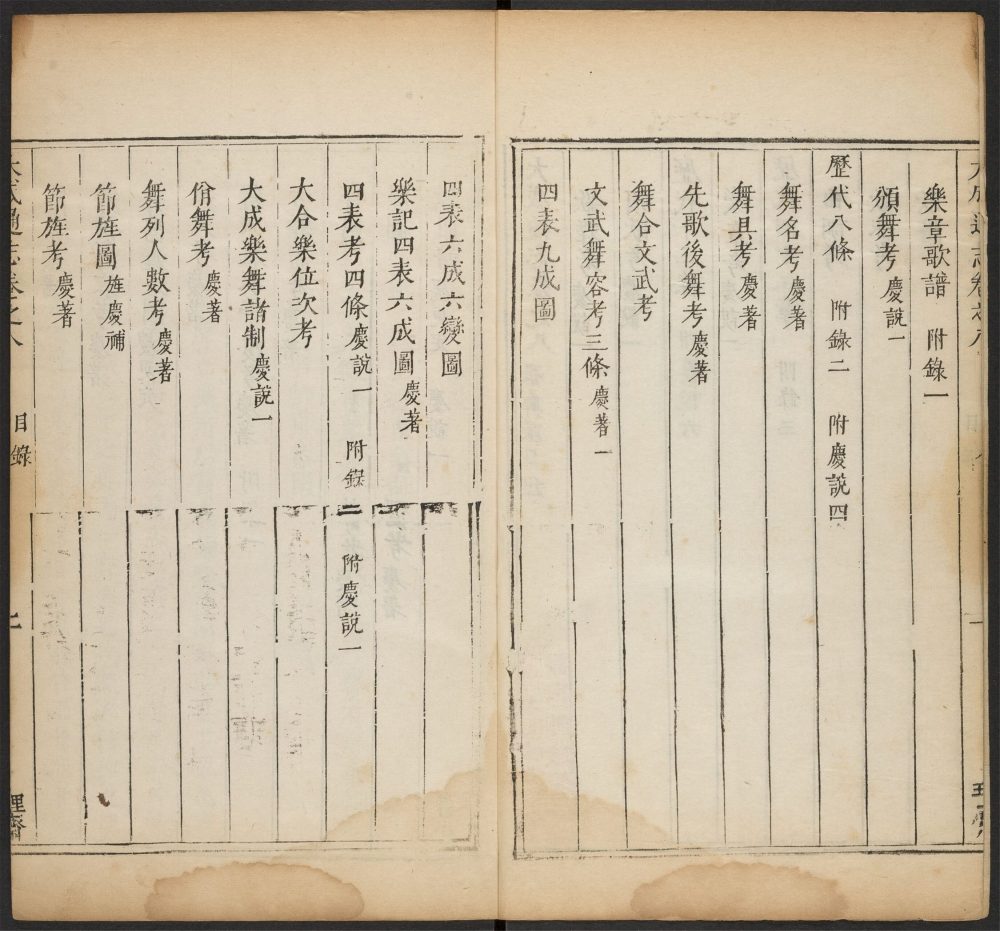 樂章歌譜　附錄一
頒舞考慶說一
歷代八條　附錄二　附慶說四
舞名考慶著
舞具考慶著
先歌後舞考慶著
舞合文武考
文武舞容考三條慶著一
四表九成圖
四表六成六變圖
樂記四表六成圖慶著
四表考四條慶說一　附錄二　附慶說一
大合樂位次考
大成樂舞諸制慶說一
佾舞考慶著
舞列人數考慶著
節旌圖旌慶補
節旌考慶著
大成通志卷之八　目錄　二　理齋